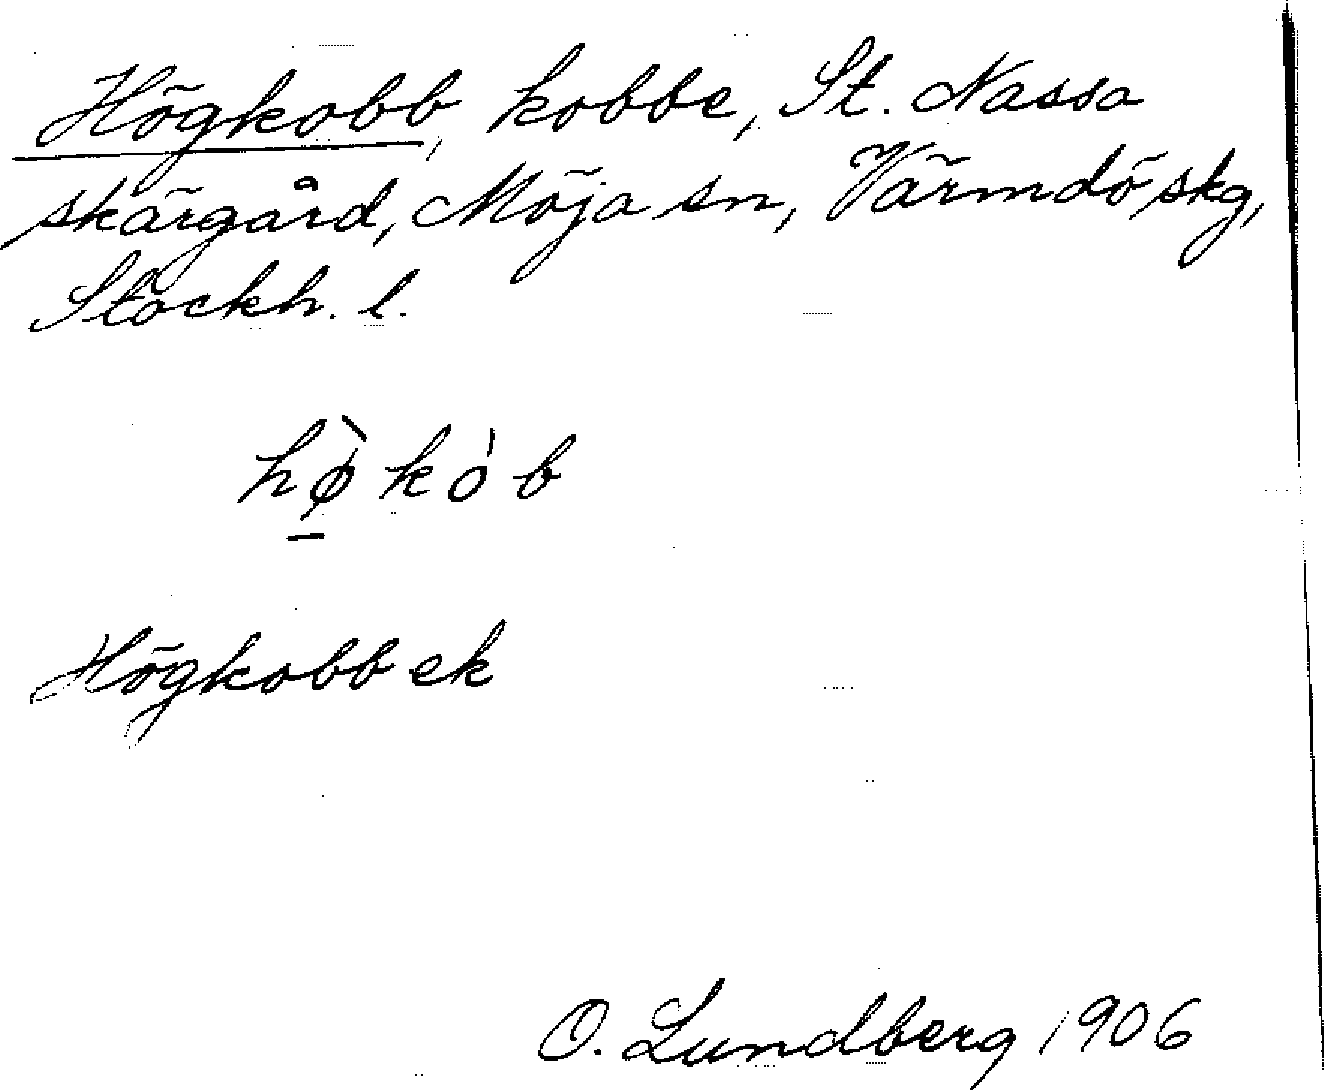 Högkobb, kobbe, St. Nassa
skärgård, Möja sn, Värmdö skg,
Stockh. l.
hø̀kòb
Högkobb ek
O. Lundberg 1906